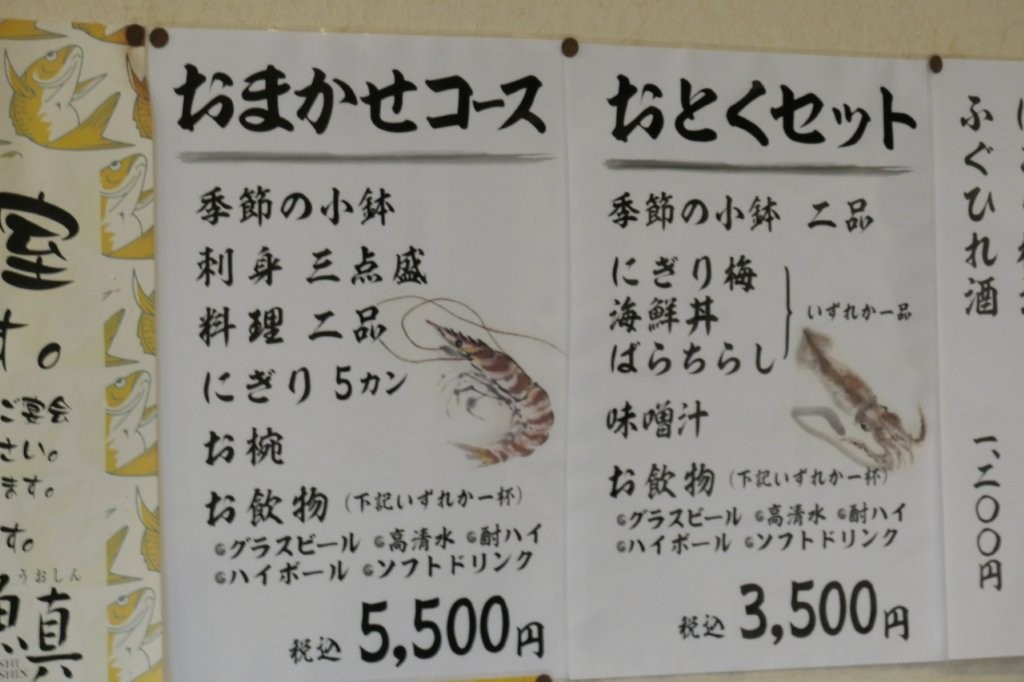 おまかせコース
季節の小鉢
刺身 三点盛
料理 二品
にぎり 5カン
お椀
お飲物(下記いずれか一杯)
グラスビール 高清水 酎ハイ
ハイボール ソフトドリンク
税込 5,500円
おとくセット
季節の小鉢 二品
にぎり梅
海鮮丼
ばらちらし
いずれか一品
味噌汁
お飲物(下記いずれか一杯)
グラスビール 高清水 酎ハイ
ハイボール ソフトドリンク
税込 3,500円
ふぐひれ酒 一、二〇〇円
室
す。
ご宴会
さい。
ます。
す。
うおしん
魚真